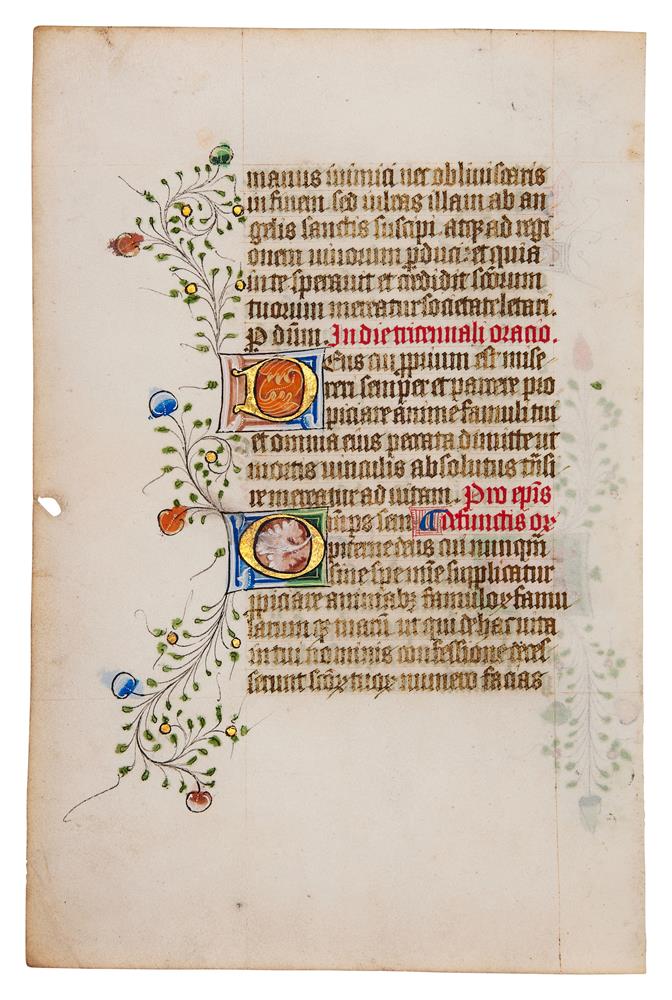 manus inimici nec obliuiscaris
in finem sed iubeas illam ab an
gelis sanctis suscipi atqꝫ ad regi
onem uiuorum ꝑduci et quia
in te sperauit et credidit sc̄orum
tuorum mereatur societate letari.
P dn̄m. In die tricennali oratio.
DEus cui ꝓprium est mise
reri semper et parcere pro
piciare anime famuli tui
et omnia eius peccata dimitte ut
mortis uinculis absolutus tn̄si
re mereatur ad uitam. Pro ep̄is
Om̄ps sem A defunctis oꝝ
piterne deus cui nunqm̄
sine spe mīe supplicatur
ꝓpiciare animabꝫ famuloꝝ famu
larum qꝫ tuarū ut qui de hac uita
in tui nominis confessione deces
serunt sc̄oꝝ tuoꝝ numero facias